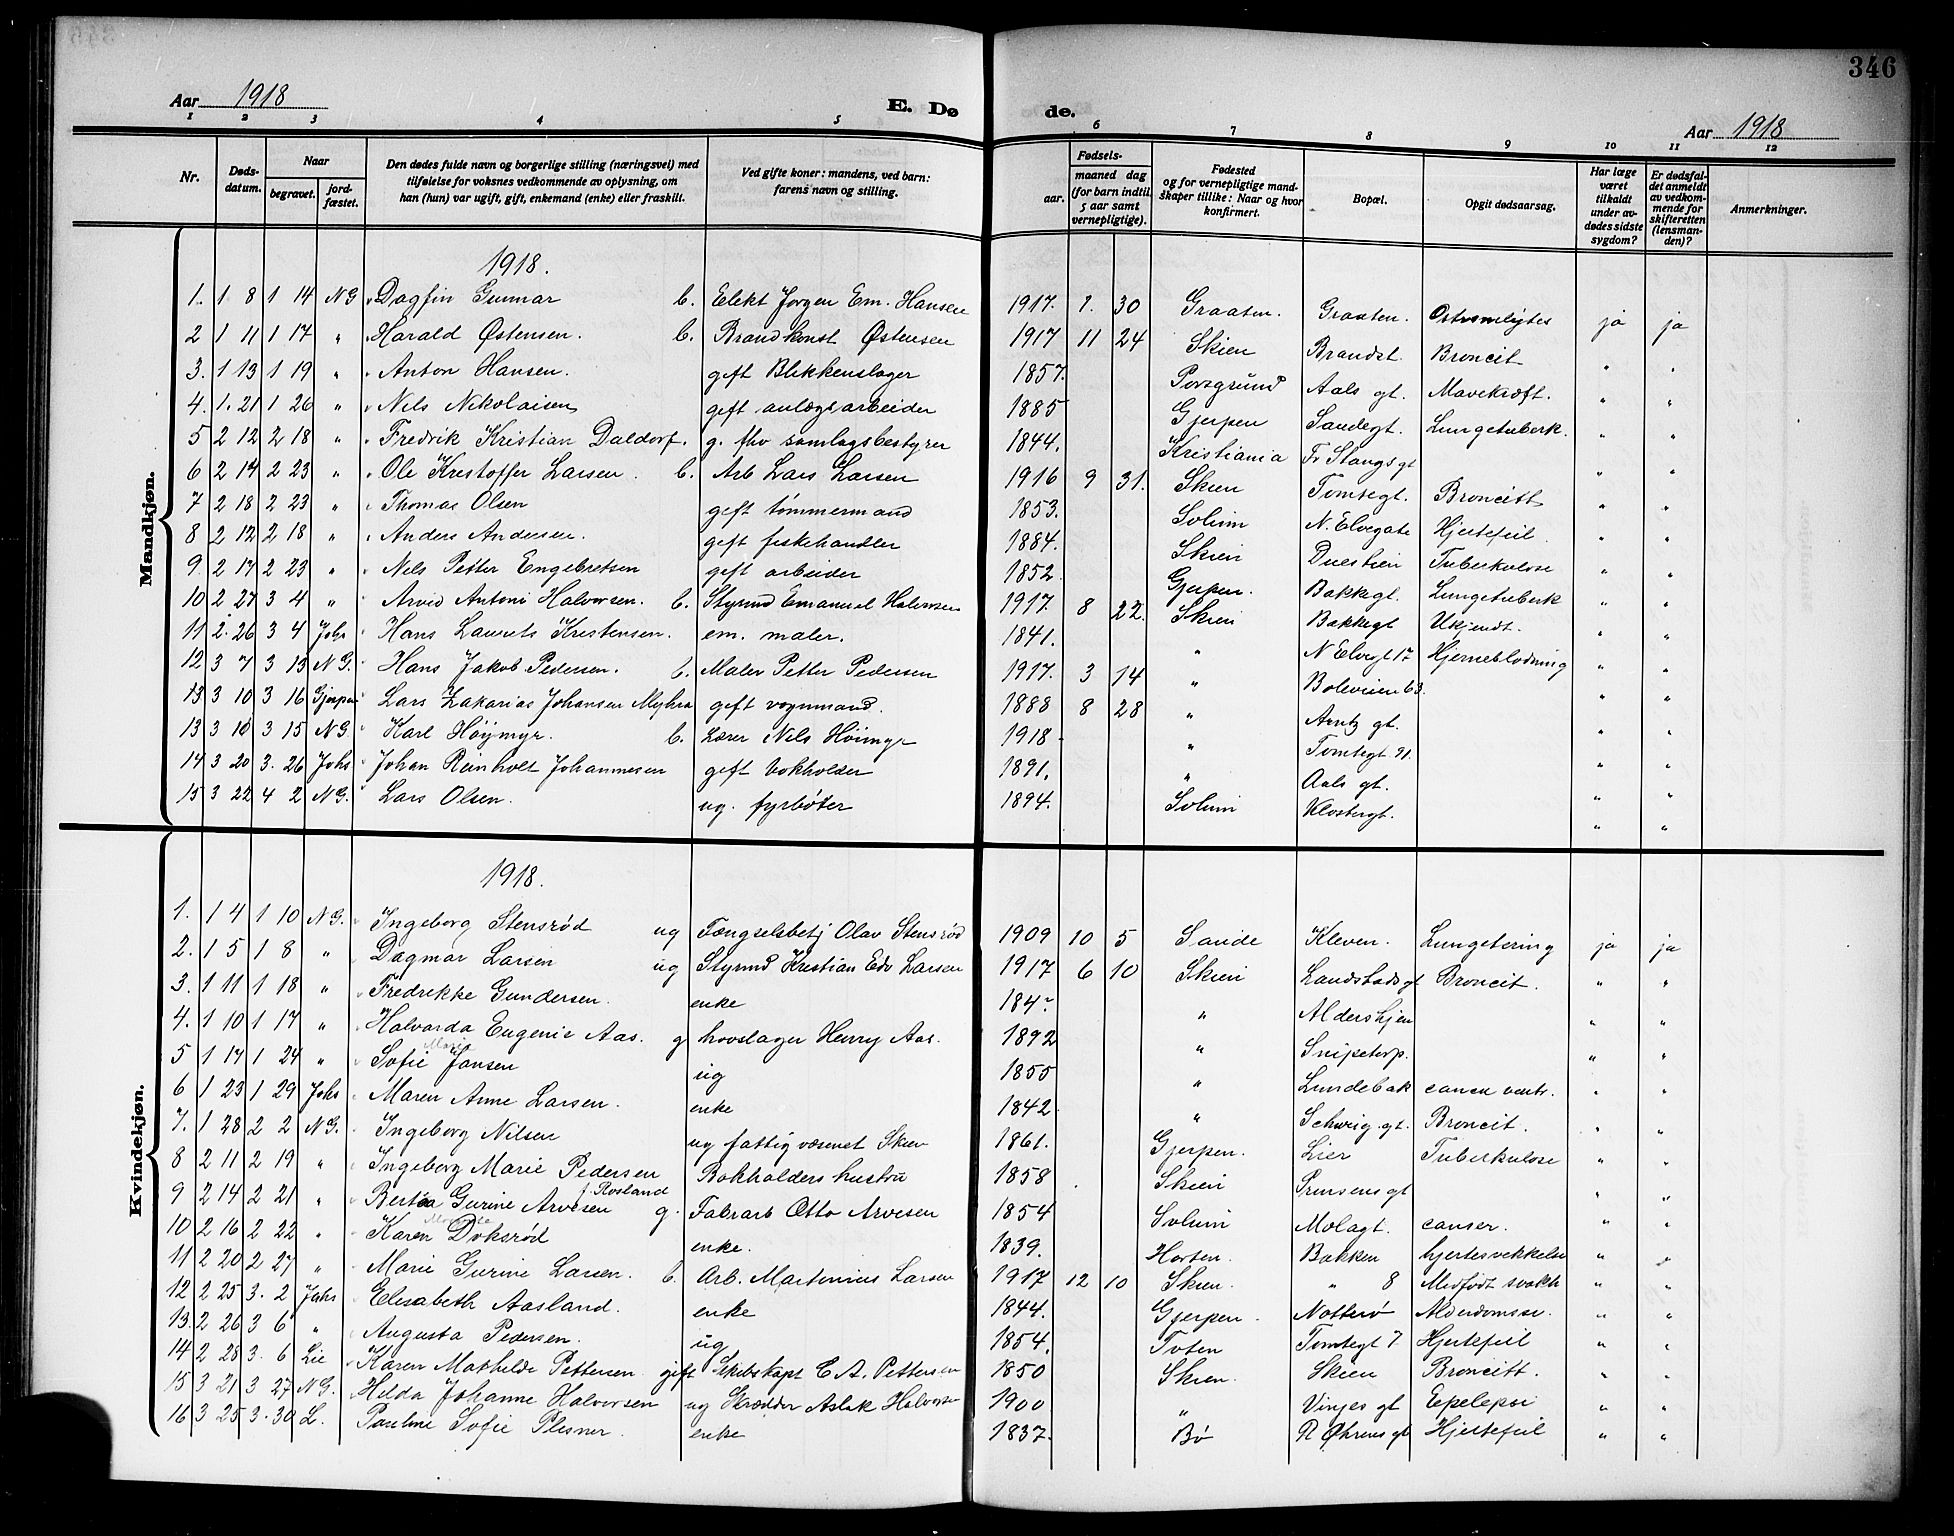 346
Aar 1918
E. Dø de.
Aar 1918
1 2 3 4 5 6 7 8 9 10 11 12
Nr.
Dødsdatum.
Naar
begravet.
jordfæstet.
Den dødes fulde navn og borgerlige stilling (næringsvei) med tilføielse for voksnes vedkommende av oplysning, om han (hun) var ugift, gift, enkemand (enke) eller fraskilt.
Ved gifte koner: mandens, ved barn: farens navn og stilling.
Fødsels-
aar.
maaned dag (for barn indtil 5 aar samt vernepligtige).
Fødested og for vernepligtige mandskaper tillike: Naar og hvor konfirmert.
Bopæl.
Opgit dødsaarsag.
Har læge været tilkaldt under avdødes sidste sygdom?
Er dødsfaldet anmeldt av vedkommende for skifteretten (lensmanden)?
Anmerkninger.
Mandkjøn.
1918.
1. 1 8 1 14 NG Dagfin Gunnar b. Elekt Jørgen Em. Hansen 1917. 7. 30 Graaten. Graaten. ja ja
2 1 11 1 17 " Harald Østensen. b. Brandkonst Østensen 1917 11 24 Skien Brandst. Broncit " "
3. 1 13 1 19 " Anton Hansen. gift Blikkenslager 1857. Porsgrund Aals gt. Mavekræft. " "
4. 1. 21 1 26 " Nils Nikolaisen gift anlægsarbeider 1885 Gjerpen Sandegt. Lungetuberk. " "
5 2 12 2 18 " Fredrik Kristian Daldorf. g. fhv samlagsbestyrer 1844. Kristiania Fr Stangsgt " "
6 2 17 2 23 " Ole Kristoffer Larsen. b. Arb Lars Larsen 1916 9 31. Skien Tomtegt. Broncitt " "
7 2 18 2 23 " Thomas Olsen gift tømmermand 1853. Solum N. Elvegate Hjertefeil. " "
8 2 12 2 18 " Anders Andersen. gift fiskehandler 1884. Skien Duestien Tuberkulose " "
9. 2 17 2 23 " Nils Petter Engebretsen gift arbeider 1852. Gjerpen. Bakkegt. Lungetuberk " "
10 2 27 3 4 " Arvid Antoni Halvorsen. b. Styrmd Emanuel Halvorsen 1917. 8 22. Skien Bakkegt Ukjendt. " "
11 2. 26 3 4 Johs Hans Laurits Kristensen. em. maler. 1841. " N Elvegt 17 Hjerneblødning " "
12 3 7 3 13 NG. Hans Jakob Pedersen. b. Maler Petter Pedersen 1917. 3 14 " Boleveien 63. " "
13 3 10 3 16 Gjerpen Lars Zakarias Johansen Myhra gift vognmand. 1888 8 28 " Arntz gt. " "
13 3 10 3 15 NG. Karl Høymyr. b. Lærer Nils Høimyr 1918 " Tomtegt. 91. " "
14 3 20 3. 26 Johs Johan Reinholt Johannesen gift bokholder 1891. " Aals gt. " "
15 3 22 4 2 NG. Lars Olsen. ug. fyrbøter 1894. Solum Klostergt. " "
Kvindekjøn.
1918.
1. 1 4 1 10 NG. Ingeborg Stensrød ug Fængselsbetj Olav Stensrød 1909 10 5 Sande Kleven. Lungetæring ja ja
2. 1 5 1 8 " Dagmar Larsen ug Styrmd Kristian Edv Larsen 1917 6 10 Skien Landstadsgt Broncit. " "
3. 1 11 1 18 " Fredrikke Gundersen. enke " Aldershjem " "
4. 1 10 1 17 " Halvarda Eugenie Aas. g hovslager Henry Aas. 1892 " Snipetorp. " "
5 1 17 1 24 " Sofie Marie Jansen ug 1855 " Lundebak " "
6 1 23 1 29 Johs Maren Anne Larsen. enke 1842. " Schweig. gt. Broncit. " "
7. 1 28 2 2 NG. Ingeborg Nilsen ug fattigvæsenet Skien 1861. Gjerpen. Lier Tuberkulose " "
8 2 11 2 19 " Ingeborg Marie Pedersen Bokholders hustru 1858 Skien Prinsens gt " "
9 2 14 2 21 " Bertea Gurine Arvesen f. Rosland g. Fabrarb Otto Arvesen 1854 Solum Molagt. canser. " "
10 2 16 2 22 " Karen Doksrød enke. 1839. Horten. Bakken hjertesvekkelse " "
11 2 20 2 27 " Marie Gurine Larsen. b. Arb. Martinius Larsen 1917 12 10 Skien. " 8 Medfødt svakh " "
12 2 25 3. 2 Johs Elisabeth Aasland. enke 1844. Gjerpen. Nøtterø Alderdomssv. " "
13. 2 26 3 6 " Augusta Pedersen. ug 1854. Toten Tomtegt 7 Hjertfeil " "
14 2 28 3. 6 Lie Karen Mathilde Pettersen gift Skibskapt C A. Pettersen 1850 Skien. Skien Broncitt. " "
15 3 21 3 27 NG. Hilda Johanne Halvorsen ug Skrædder Aslak Halvorsen 1900 " Vinjes gt Epelepsi " "
16 3 25 3. 30 L. Pauline Sofie Plesner. enke 1837. Bø R Øhrens gt Hjertefeil " "